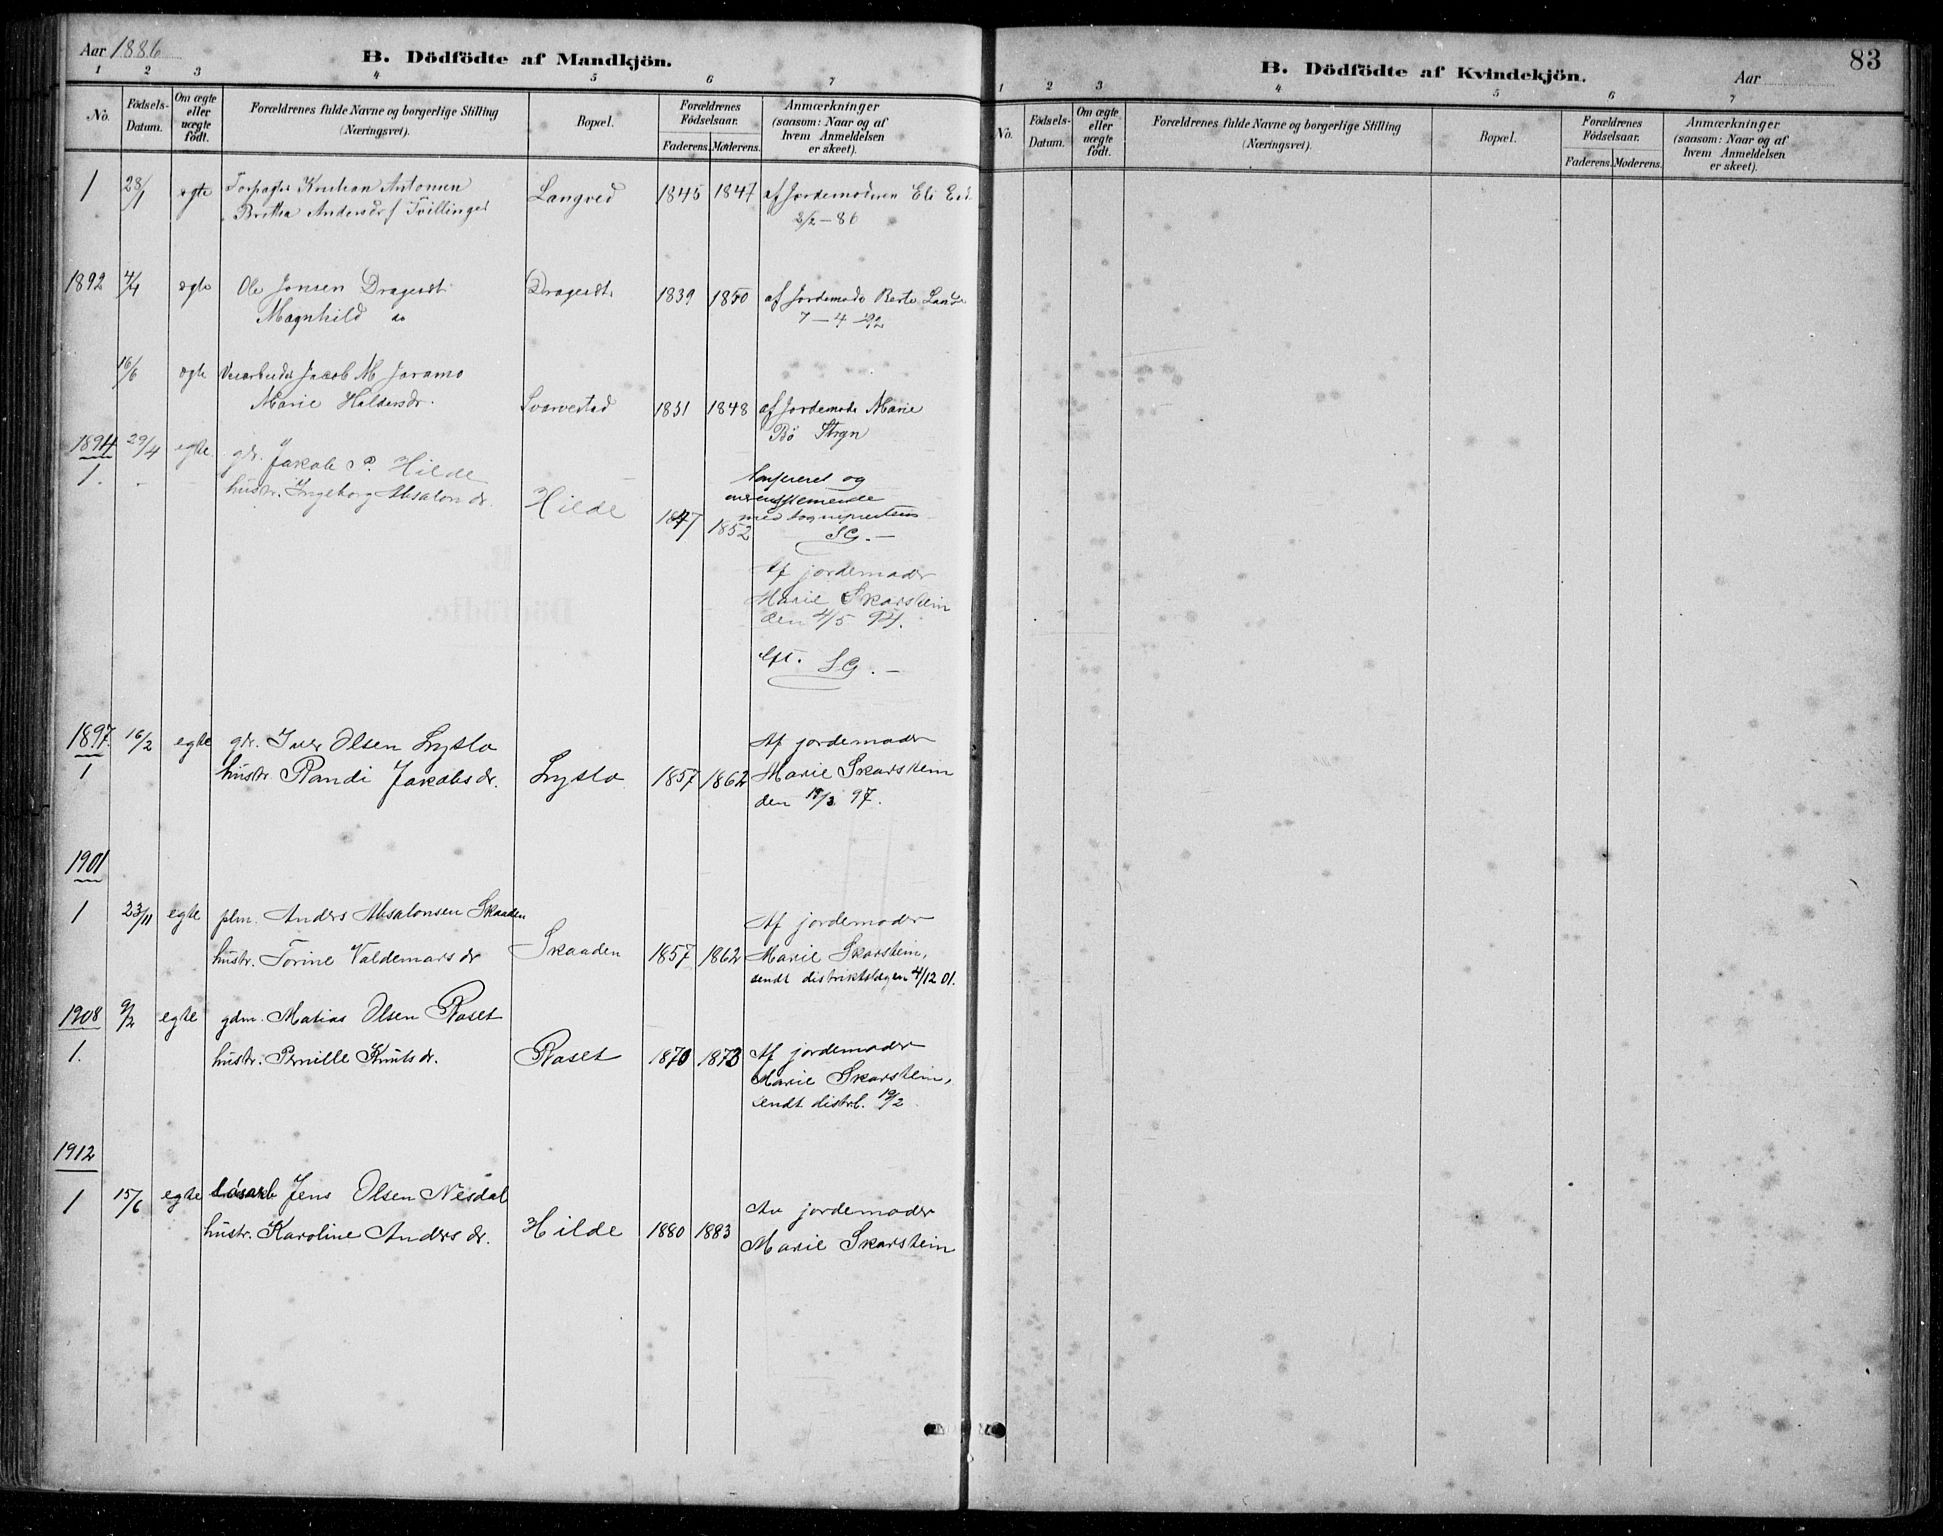 Aar 1886
B. Dödfödte af Mandkjön.
1 2 3 4 5 6 7
No.
Födsels-Datum.
Om ægte eller uægte födt.
Forældrenes fulde Navne og borgerlige Stilling (Næringsvei).
Bopæl.
Forældrenes Födselsaar.
Faderens. Moderens.
Anmærkninger (saasom: Naar og af hvem Anmeldelsen er skeet).
1 28/1 ægte Antonsen Langved 1845 1847 af Jordemoderen Eli
Britha Andersdr / Tvillinger 3/2-86
1892 4/4 ægte Ole Jonsen Dragesæt Dragesæt 1839 1850 af Jordemode Berte Lande
Magnhild do 7-4-92
16/6 ægte Jacob M Jaramo
Marie Haldersdr. Svarvestad 1831 1848 af Jordemode Marie
Bö Stryn
1894 29/4 egte gdr. Jakob P. Hilde
1. hustr. Ingeborg Absalonsdr. Hilde 1847 1852
Konfereret og
overensstemmende
med sogneprestens
SG.-
Af jordemoder
Marie Skarstein
den 4/5 94.
Eft. SG.-
1897. 16/2 egte gdr. Iver Olsen Lyslo Af jordemoder
1 hustr Randi Jakobsdr. Lyslo 1857 1862 Marie Skarstein
den 18/3 97.
1901
1 23/11 egte plm. Anders Absalonsen Skaaden Af jordemoder
hustr. Torine Valdemarsdr Skaaden 1857 1862 Marie Skarstein,
sendt distriktslægen 4/12 01.
1908 9/2 egte gdm. Matias Olsen Raset
1. hustr. Pernille Knutsdr. Raset 1870 1873 Af jordemoder
Marie Skarstein,
sendt distrl. 19/2
1912
1 15/6 egte Lösarb Jens Olsen Nesdal Av jordemoder
hustr. Karoline Andersdr. Hilde 1880 1883 Marie Skarstein
83
B. Dödfödte af Kvindekjön.
Aar
1 2 3 4 5 6 7
No.
Födsels-Datum.
Om ægte eller uægte födt.
Forældrenes fulde Navne og borgerlige Stilling (Næringsvei).
Bopæl.
Forældrenes Födselsaar.
Faderens. Moderens.
Anmærkninger (saasom: Naar og af hvem Anmeldelsen er skeet).